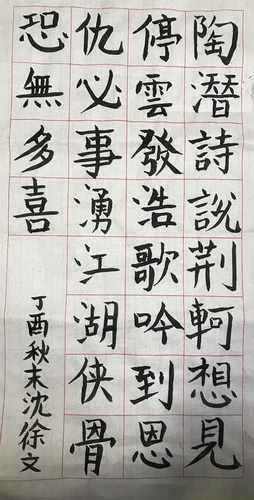 陶潛詩說荆軻想見
停雲發浩歌吟到恩
仇必事湧江湖侠骨
恐無多喜
丁酉秋末沈徐文